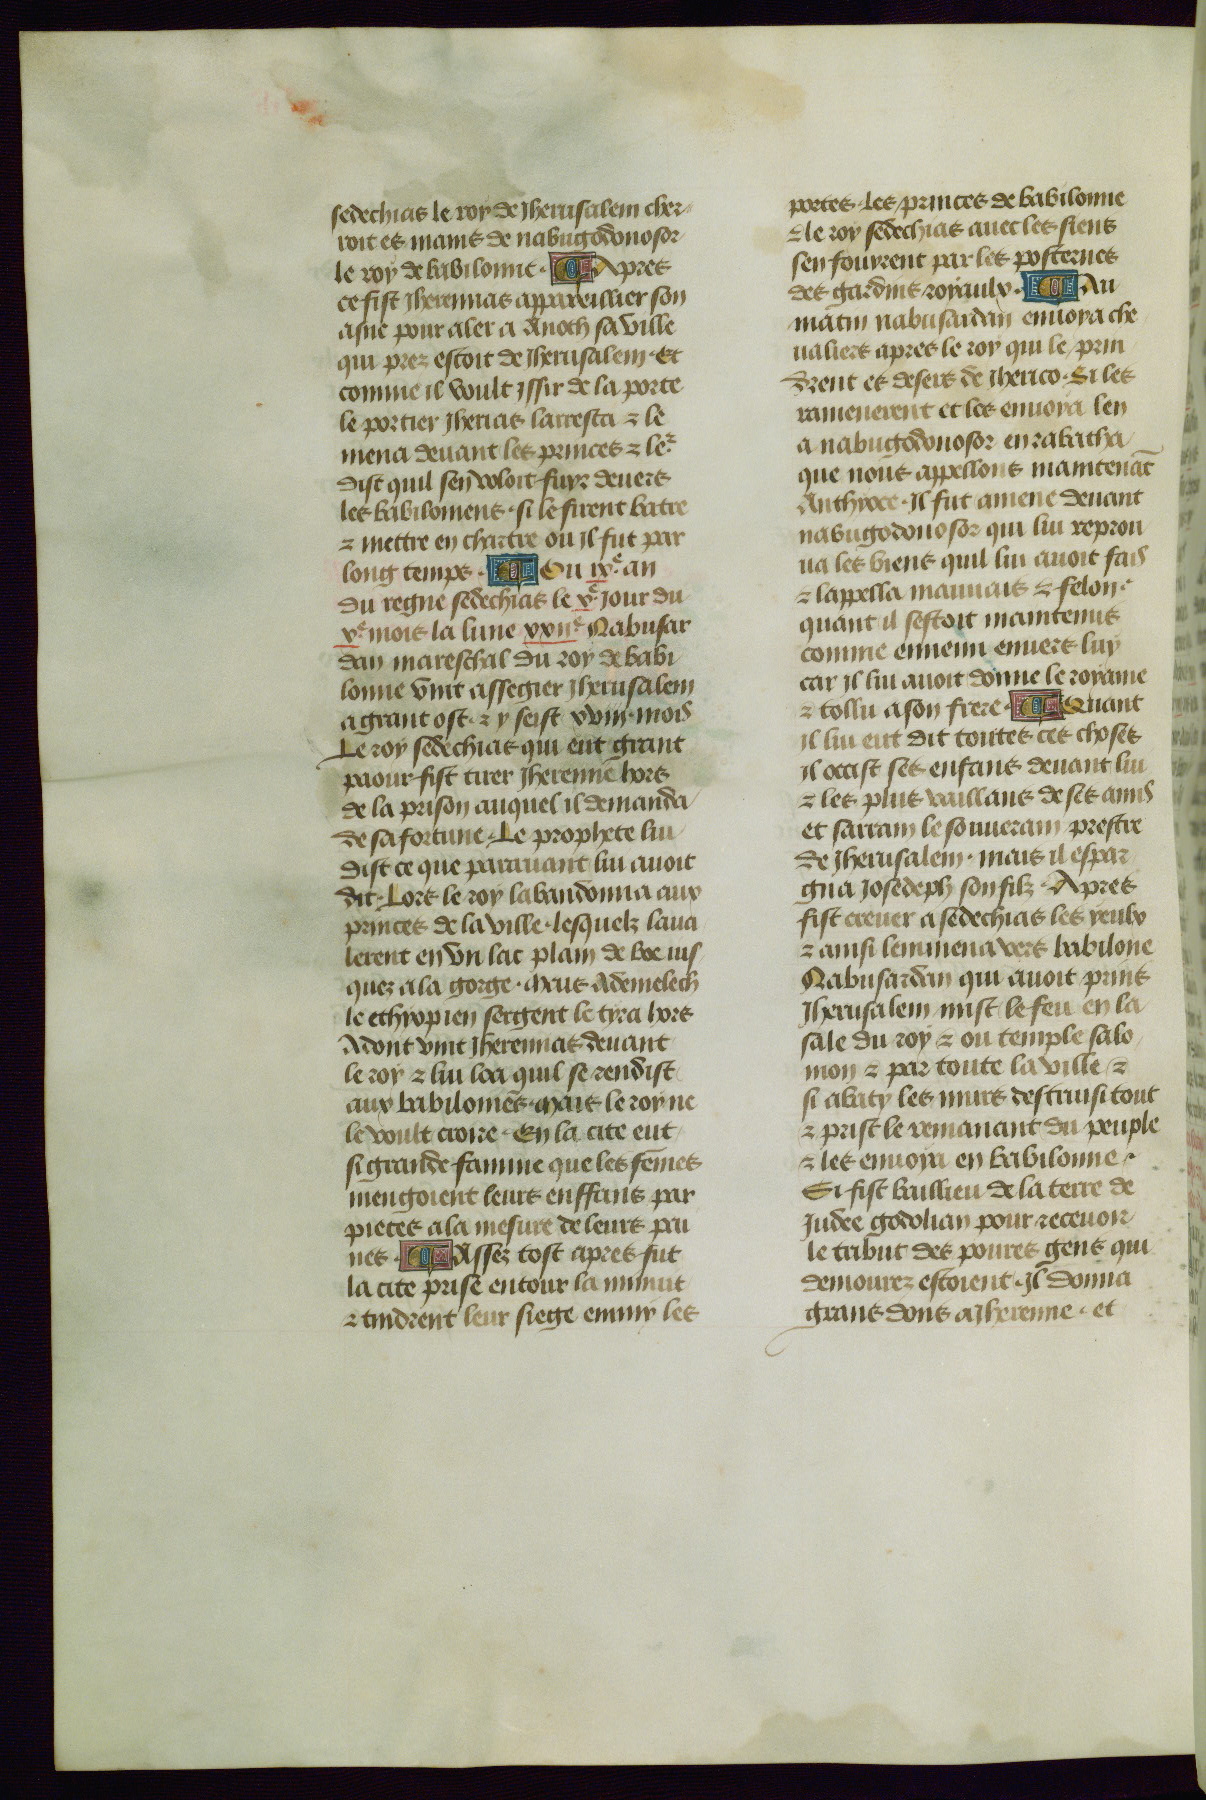 sedechias le roy de Jherusalem cher
roit es mains de nabugodonosor
le roy de babilonne. Apres
ce fist Jheremias appareillier son
asne pour aler a Anoth sa ville
qui prez estoit de Jherusalem. Et
comme il voult issir de la porte
le portier Jherias larresta ⁊ le
mena devant les princes ⁊ leꝛ
dist quil sen voloit fuyr devers
les babiloniens. si le firent batre
⁊ mettre en chartre ou il fut par
long temps. Ou ixͤ. an
du regne sedechias le vͤ. jour du
vͤ. mois la lune xxiiͤ Nabusar
dan mareschal du roy de babi
lonne vint assegier Jherusalem
a grant ost. ⁊ y seist xviii. mois
Le roy sedechias qui eut grant
paour fist tirer Jheremie hors
de la prison auquel il demanda
de sa fortune. Le prophete lui
dist ce que paravant lui avoit
dit. Lors le roy labandonna aux
princes de la ville. lesquelz lava
lerent en vn lac plain de boe ius
quez a la gorge. Mais Ademelech
le ethyopien sergent le tyra hors
Adont vint Jheremias devant
le roy ⁊ lui loa quil se rendist
aux babiloniēs. Mais le roy ne
le voult croire. En la cite eut
si grande famine que les fēmes
mengoient leurs enffans par
pieces a la mesure de leurs pau
mes. Assez tost apres fut
la cite prise entour la minuit
⁊ tindrent leur siege emmy les
portes. Les princes de babilonne
⁊ le roy sedechias avec les siens
sen fouyrent par les posternes
des gardins royaulx. Au
matin nabusardan envoya che
valiers apres le roy qui le prin
drent es desers de Jherico. Si les
ramenerent et les envoya len
a nabugodonosor en rabatha
que nous appellons maintenāt
Anthyoce. Il fut amene devant
nabugodonosor qui lui reprou
va les biens quil lui avoit fais
⁊ lappella mauvais ⁊ felon.
quant il sestoit maintenus
comme ennemi envers luy
car il lui avoit donne le royame
⁊ tollu a son frere. Quant
il lui eut dit toutes ces choses
il occist ses enfans devant lui
⁊ les plus vaillans de ses amis
et sarram le souverain prestre
de Jherusalem. mais il espar
gna Josedeph son filz. Apres
fist crever a sedechias les yeulx
⁊ ainsi lenmena vers babilone
Nabusardan qui avoit prins
Jherusalem mist le feu en la
sale du roy ⁊ ou temple salo
mon ⁊ par toute la ville ⁊
si abaty les murs destruisi tout
⁊ prist le remanant du peuple
⁊ les envoya en babilonne.
Si fist baillieu de la terre de
Judee godolian pour recevoir
le tribut des poures gens qui
demourez estoient. Il donna
grans dons a Jheremie. et